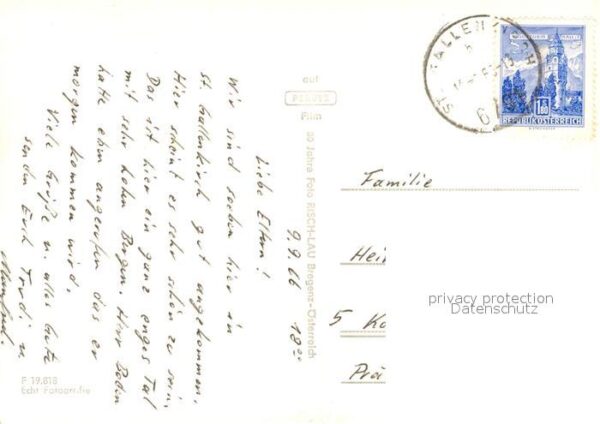 9.9.66 18⁰⁰
Liebe Eltern!
Wir sind soeben hier in
St. Gallenkirch gut angekommen.
Hier scheint es sehr schön zu sein.
Das ist hier ein ganz enges Tal
mit sehr hohen Bergen. Herr Boden
hatte eben angerufen das er
morgen kommen wird.
Viele Grüße u. alles Gute
senden Euch Trudi u
Manfred.
F 19.818
Echt Fotografie
auf
PERUTZ
Film
30 Jahre Foto RISCH-LAU Bregenz-Österreich
ST. GALLENKIRCH
1.80
REPUBLIK ÖSTERREICH
Familie
Hei
5 Ko
Prä
privacy protection
Datenschutz